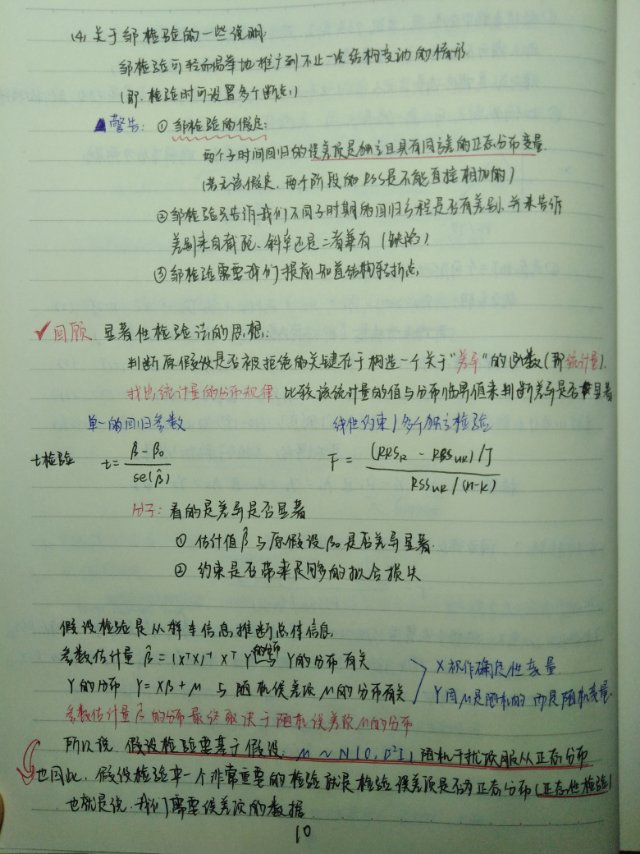 (4) 关于邹检验的一些说明
邹检验可轻而易举地推广到不止一次结构变动的情形
(即,检验时可设置多个断点)
警告: ① 邹检验的假定:
两个子时间回归的误差项是独立且具有同方差的正态分布变量
(若无该假定,两个阶段的RSS是不能直接相加的)
② 邹检验只告诉我们不同子时期的回归方程是否有差别,并未告诉
差别来自截距、斜率还是二者兼有(缺陷)
③ 邹检验需要我们提前知道结构转折点
✓回顾 显著性检验法的思想:
判断原假设是否被拒绝的关键在于构造一个关于“差异”的函数(即统计量)
找出统计量的分布规律,比较该统计量的值与分布临界值来判断差异是否显著
单一的回归参数 线性约束/多个独立检验
t检验 t = (β̂ - β₀) / se(β̂) F = ((RRS_R - RSS_UR)/J) / (RSS_UR/(n-k))
分子: 看的是差异是否显著
① 估计值β̂与原假设β₀是否差异显著
② 约束是否带来足够的拟合损失
假设检验是从样本信息推断总体信息
参数估计量 β̂ = (XᵀX)⁻¹XᵀY 与Y的分布有关
Y的分布 Y = Xβ + μ 与随机误差项μ的分布有关
X视作确定性变量
Y因μ是随机的而是随机变量
参数估计量β̂的分布最终取决于随机误差项μ的分布
所以说,假设检验要基于假设: μ ~ N(0, σ²I) 随机干扰项服从正态分布
也因此,假设检验中一个非常重要的检验就是检验误差项是否为正态分布(正态性检验)
也就是说,我们需要误差项的数据
10